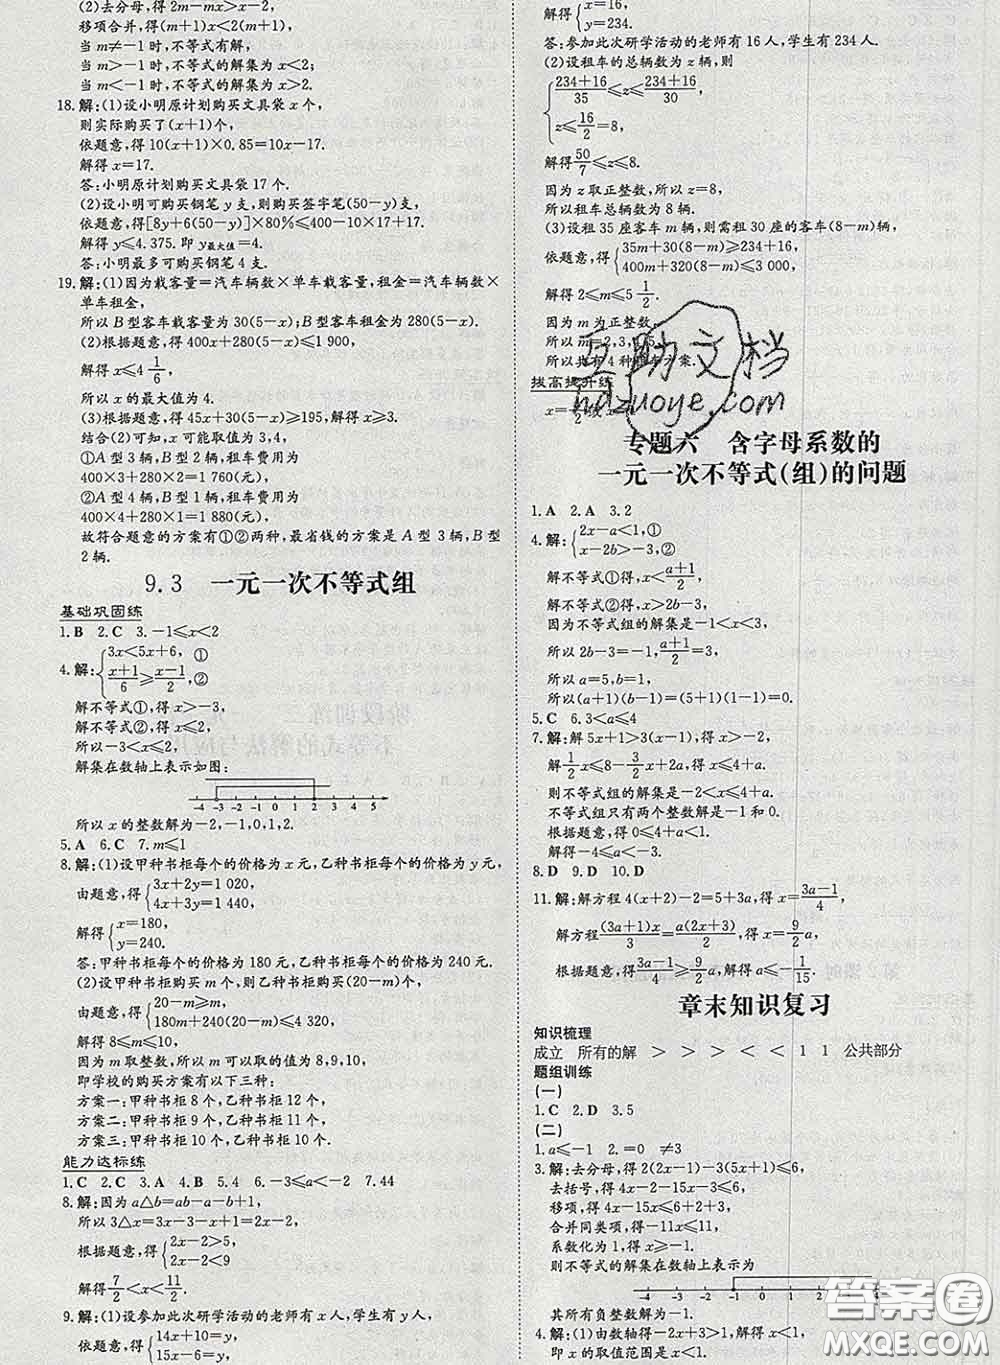 (2)去分母,得2m-mx>x-2,
移项合并,得(m+1)x<2(m+1),
当m≠-1时,不等式有解,
当m>-1时,不等式的解集为x<2;
当m<-1时,不等式的解集为x>2.
18.解:(1)设小明原计划购买文具袋x个,
则实际购买了(x+1)个,
依题意,得10(x+1)×0.85=10x-17.
解得x=17.
答:小明原计划购买文具袋17个.
(2)设小明可购买钢笔y支,则购买签字笔(50-y)支,
依题意,得[8y+6(50-y)]×80%≤400-10×17+17.
解得y≤4.375.即y最大值=4.
答:小明最多可购买钢笔4支.
19.解:(1)因为载客量=汽车辆数×单车载客量,租金=汽车辆数×
单车租金,
所以B型客车载客量为30(5-x);B型客车租金为280(5-x);
(2)根据题意,得400x+280(5-x)≤1 900,
解得x≤4 1/6,
所以x的最大值为4.
(3)根据题意,得45x+30(5-x)≥195,解得x≥3.
结合(2)可知,x可能取值为3,4,
①A型3辆,B型2辆,租车费用为
400×3+280×2=1 760(元),
②A型4辆,B型1辆,租车费用为
400×4+280×1=1 880(元),
故符合题意的方案有①②两种,最省钱的方案是A型3辆,B型
2辆.
9.3 一元一次不等式组
基础巩固练
1.B 2.C 3.-1≤x<2
4.解:{3x<5x+6,①
(x+1)/6≥(x-1)/2,②
解不等式①,得x>-3,
解不等式②,得x≤2,
所以-3<x≤2,
解集在数轴上表示如图:
-4 -3 -2 -1 0 1 2 3 4 5
所以x的整数解为-2,-1,0,1,2.
5.A 6.C 7.m≤1
8.解:(1)设甲种书柜每个的价格为x元,乙种书柜每个的价格为y元,
由题意,得{3x+2y=1 020,
4x+3y=1 440,
解得{x=180,
y=240.
答:甲种书柜每个的价格为180元,乙种书柜每个的价格为240元.
(2)设甲种书柜购买m个,则乙种书柜购买(20-m)个,
由题意,得{20-m≥m,
180m+240(20-m)≤4 320,
解得8≤m≤10,
因为m取整数,所以m可以取的值为8,9,10,
即学校的购买方案有以下三种:
方案一:甲种书柜8个,乙种书柜12个,
方案二:甲种书柜9个,乙种书柜11个,
方案三:甲种书柜10个,乙种书柜10个.
能力达标练
1.C 2.C 3.A 4.B 5.4 6.-3≤a<-2 7.44
8.解:因为a△b=ab-a-b+1,
所以3△x=3x-3-x+1=2x-2,
根据题意,得{2x-2>5,
2x-2<9
解得7/2<x<11/2.
9.解:(1)设参加此次研学活动的老师有x人,学生有y人,
依题意,得{14x+10=y,
15x-6=y,
解得{x=16,
y=234.
答:参加此次研学活动的老师有16人,学生有234人.
(2)设租车的总辆数为z辆,则
{(234+16)/35≤z≤(234+16)/30,
z≤16/2=8,
解得50/7≤z≤8,
因为z取正整数,所以z=8,
所以租车总辆数为8辆.
(3)设租35座客车m辆,则需租30座的客车(8-m)辆,
依题意,得{35m+30(8-m)≥234+16,
400m+320(8-m)≤3 000,
解得2≤m≤5 1/2.
因为m为正整数,
所以m=2,3,4,5,
所以共有4种租车方案.
拔高提升练
专题六 含字母系数的
一元一次不等式(组)的问题
1.A 2.A 3.2
4.解:{2x-a<1,①
x-2b>-3,②
解不等式①得,x<(a+1)/2,
解不等式②得,x>2b-3,
因为不等式组的解集是-1<x<3,
所以2b-3=-1,(a+1)/2=3,
所以a=5,b=1,
所以(a+1)(b-1)=(5+1)(1-1)=0.
5.C 6.3<a≤4
7.解:解5x+1>3(x-1),得x>-2,
解1/2x≤8-3/2x+2a,得x≤4+a.
则不等式组的解集是-2<x≤4+a.
不等式组只有两个整数解是-1和0.
根据题意,得0≤4+a<1.
解得-4≤a<-3.
8.D 9.D 10.D
11.解:解方程4(x+2)-2=5+3a,得x=(3a-1)/4,
解方程(3a+1)x/3=a(2x+3)/2,得x=9/2a,
根据题意,得(3a-1)/4≥9/2a,a≤-1/15.
章末知识复习
知识梳理
成立 所有的解 > > > < < 1 1 公共部分
题组训练
(一)
1.C 2.D 3.5
(二)
1.a≤-1 2.=0 ≠3
3.解:去分母,得2(2x-1)-3(5x+1)≤6,
去括号,得4x-2-15x-3≤6,
移项,得4x-15x≤6+2+3,
合并同类项,得-11x≤11,
系数化为1,得x≥-1.
则不等式的解集在数轴上表示为
-4 -3 -2 -1 0 1 2
其所有负整数解为-1.
4.解:(1)由数轴上点的
即x的取值范围是x<1.
互助文档
hdzuoye.com
答案圈
MXQE.COM